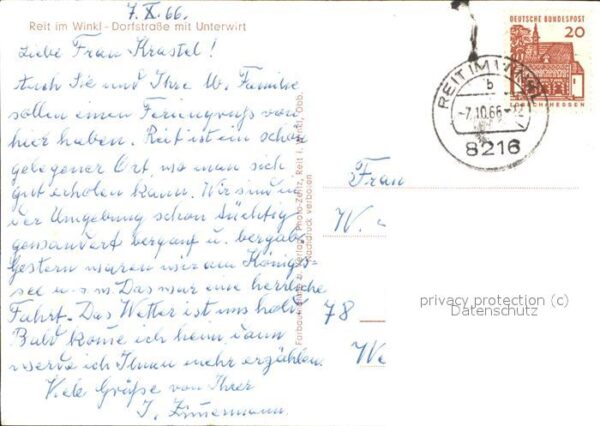 7.X.66.
Reit im Winkl - Dorfstraße mit Unterwirt
Liebe Frau Krastel!
Auch Sie und Ihre W. Familie
sollen einen Feriengruß von
hier haben. Reit ist ein schön
gelegener Ort, wo man sich
gut erholen kann. Wir sind in
der Umgebung schon tüchtig
gewandert bergauf u. bergab.
Gestern waren wir am Königs-
see u.s.w. Das war eine herrliche
Fahrt. Das Wetter ist uns hold
Bald kome ich heim dann
werde ich Ihnen mehr erzählen.
Viele Grüße von Ihrer
I. Zimmermann
Farbaufnahme u. Verlag: Photo-Zeitz, Reit i. Winkl, Obb.
Nachdruck verboten
DEUTSCHE BUNDESPOST
20
LORSCH/HESSEN
REIT IM WINKL
b
-7.10.66-12
8216
Frau
W.
78
We
privacy protection (c)
Datenschutz